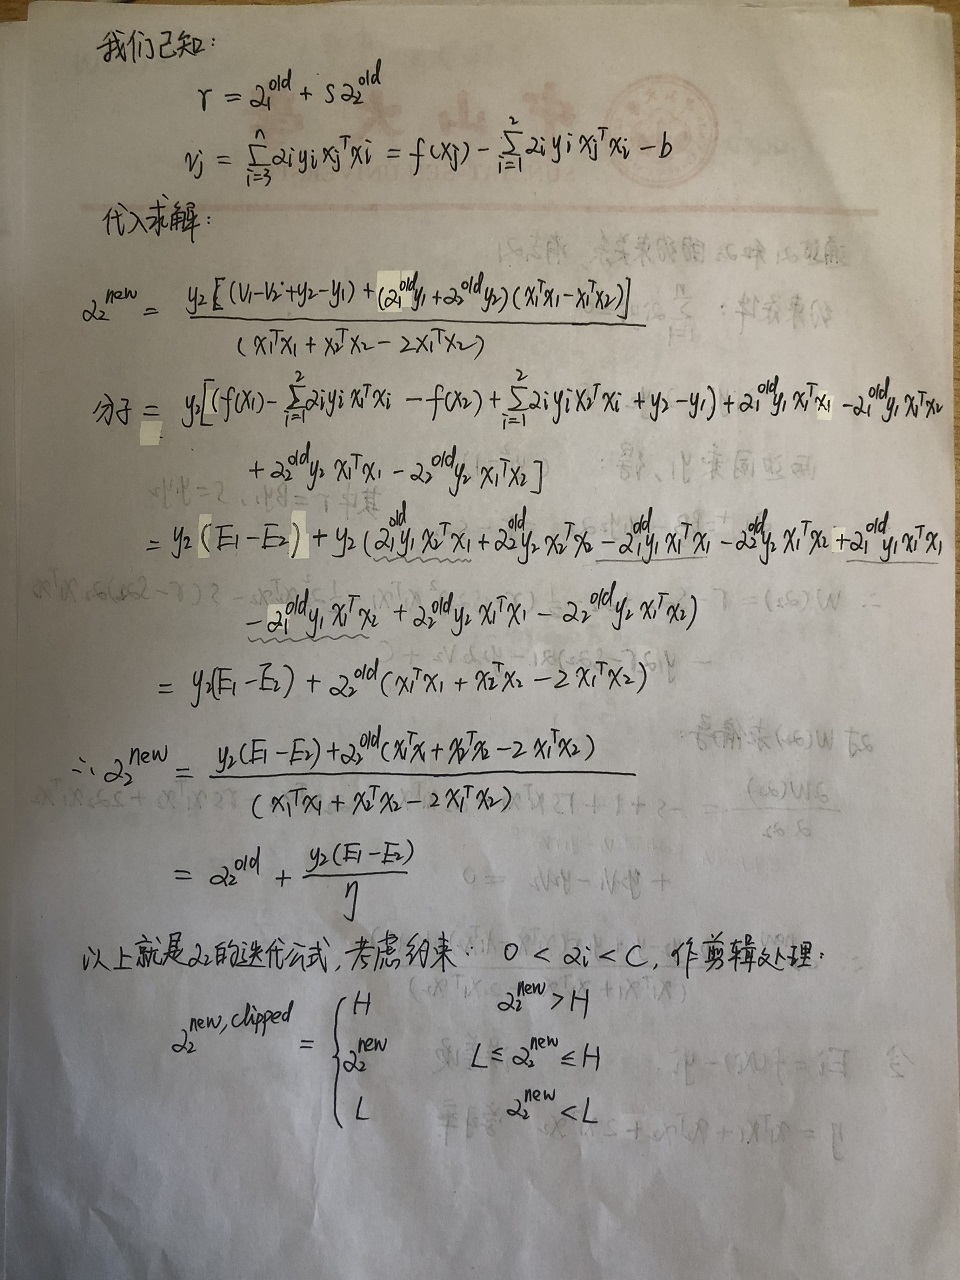 我们已知:
r = α₁^old + sα₂^old
vⱼ = Σ_{i=3}^{n} αᵢyᵢxⱼᵀxᵢ = f(xⱼ) - Σ_{i=1}^{2} αᵢyᵢxⱼᵀxᵢ - b
代入求解:
α₂^new = y₂[(v₁-v₂+y₂-y₁)+(α₁^old y₁+α₂^old y₂)(x₁ᵀx₁-x₁ᵀx₂)] / (x₁ᵀx₁+x₂ᵀx₂-2x₁ᵀx₂)
分子 = y₂[(f(x₁)-Σ_{i=1}^{2} αᵢyᵢx₁ᵀxᵢ-f(x₂)+Σ_{i=1}^{2} αᵢyᵢx₂ᵀxᵢ+y₂-y₁)+α₁^old y₁x₁ᵀx₁-α₁^old y₁x₁ᵀx₂
+α₂^old y₂x₁ᵀx₁-α₂^old y₂x₁ᵀx₂]
= y₂(E₁-E₂)+y₂(α₁^old y₁x₂ᵀx₁+α₂^old y₂x₂ᵀx₂-α₁^old y₁x₁ᵀx₁-α₂^old y₂x₁ᵀx₂+α₁^old y₁x₁ᵀx₁
-α₁^old y₁x₁ᵀx₂+α₂^old y₂x₁ᵀx₁-α₂^old y₂x₁ᵀx₂)
= y₂(E₁-E₂)+α₂^old(x₁ᵀx₁+x₂ᵀx₂-2x₁ᵀx₂)
∴ α₂^new = y₂(E₁-E₂)+α₂^old(x₁ᵀx₁+x₂ᵀx₂-2x₁ᵀx₂) / (x₁ᵀx₁+x₂ᵀx₂-2x₁ᵀx₂)
= α₂^old + y₂(E₁-E₂) / η
以上就是α₂的迭代公式,考虑约束: 0<αᵢ<C, 作剪辑处理:
α₂^new,clipped = {
H α₂^new>H
α₂^new L≤α₂^new≤H
L α₂^new<L